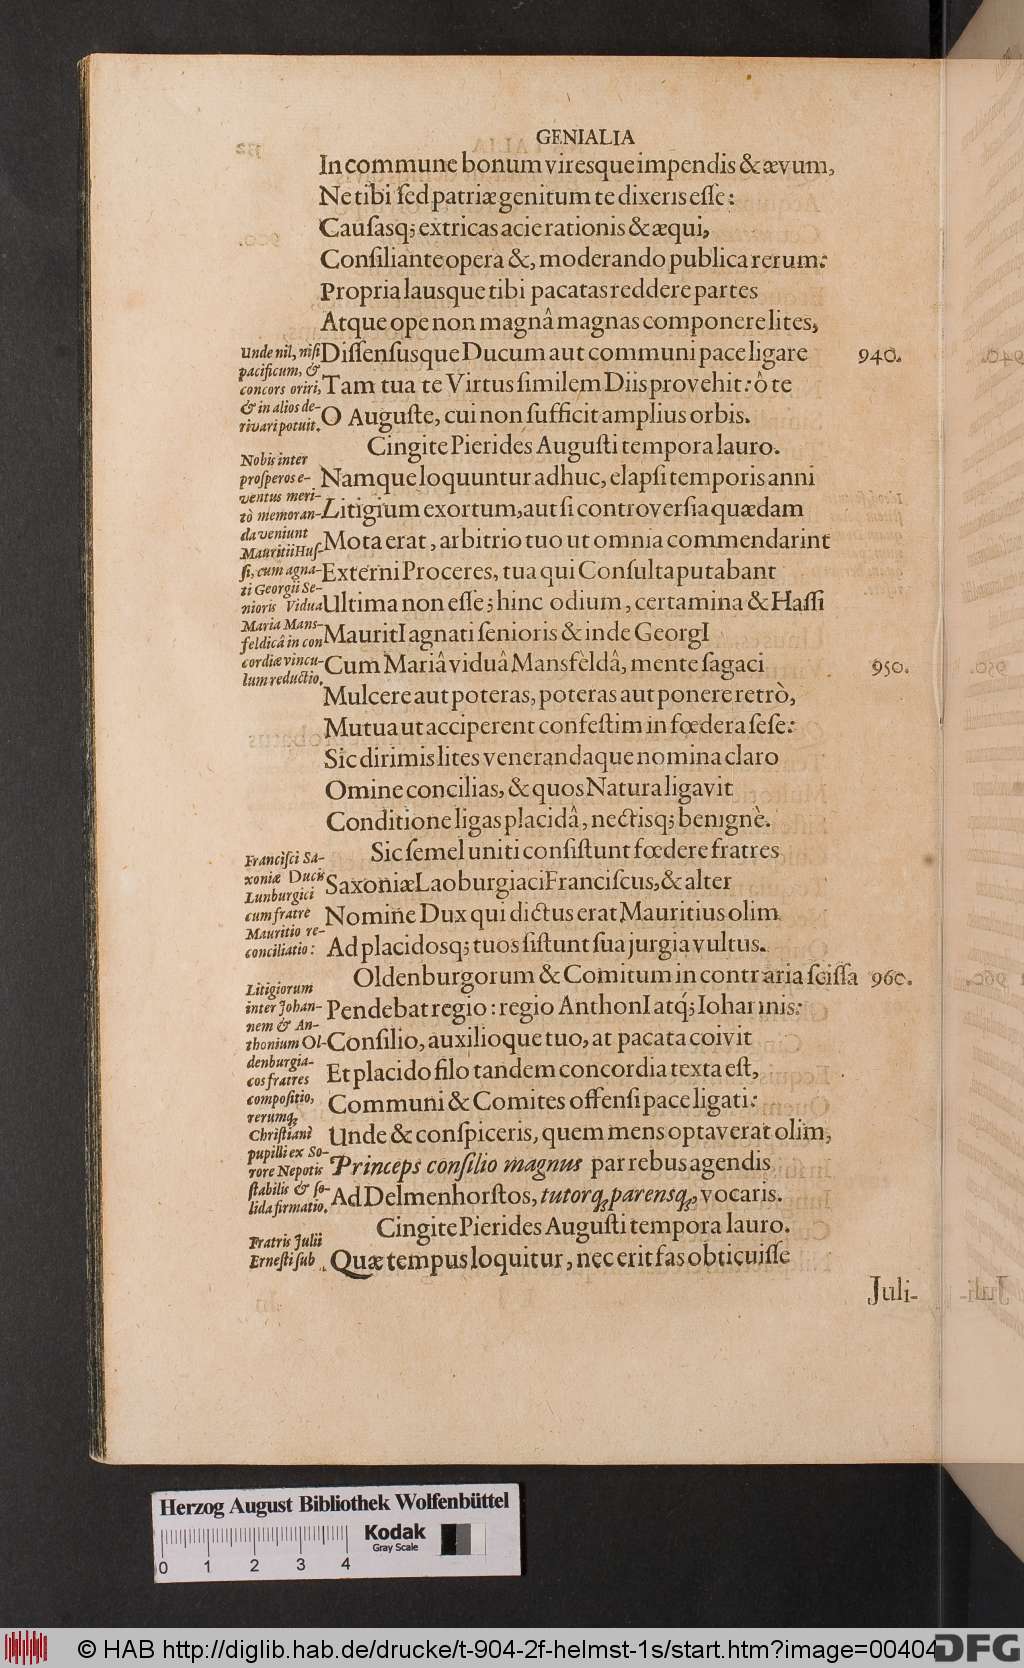 GENIALIA
In commune bonum viresque impendis & ævum,
Ne tibi ſed patriæ genitum te dixeris eſſe:
Cauſasq; extricas acie rationis & æqui,
Conſiliánte opera &, moderando publica rerum:
Propria lausque tibi pacatas reddere partes
Atque ope non magnâ magnas componere lites,
Diſſenſusque Ducum aut communi pace ligare 940.
Tam tua te Virtus ſimilem Diis provehit: ô te
O Auguſte, cui non ſufficit amplius orbis.
Cingite Pierides Auguſti tempora lauro.
Namque loquuntur adhuc, elapſi temporis anni
Litigium exortum, aut ſi controverſia quædam
Mota erat, arbitrio tuo ut omnia commendarint
Externi Proceres, tua qui Conſulta putabant
Ultima non eſſe; hinc odium, certamina & Haſſi
MauritI agnati ſenioris & inde GeorgI
Cum Mariâ viduâ Mansfèldâ, mente ſagaci 950.
Mulcere aut poteras, poteras aut ponere retrò,
Mutua ut acciperent confeſtim in fœdera ſeſe:
Sic dirimis lites venerandaque nomina claro
Omine concilias, & quos Natura ligavit
Conditione ligas placidâ, nectisq; benignè.
Sic ſemel uniti conſiſtunt fœdere fratres
Saxoniæ Laoburgiaci Franciſcus, & alter
Nomine Dux qui dictus erat Mauritius olim
Ad placidosq; tuos ſiſtunt ſua jurgia vultus.
Oldenburgorum & Comitum in contraria ſciſſa 960.
Pendebat regio: regio AnthonI atq́; Iohannis:
Conſilio, auxilioque tuo, at pacata coivit
Et placido filo tandem concordia texta eſt,
Communi & Comites offenſi pace ligati:
Unde & conſpiceris, quem mens optaverat olim,
Princeps conſilio magnus par rebus agendis
Ad Delmenhorſtos, tutorq; parensq;, vocaris.
Cingite Pierides Auguſti tempora lauro.
Quæ tempus loquitur, nec erit fas obticuiſſe
Juli-
Unde nil, niſi
pacificum, &
concors oriri,
& in alios de-
rivari potuit.
Nobis inter
proſperos e-
ventus meri-
tò memoran-
da veniunt
Mauritii Huſ-
ſi, cum agna-
ti Georgii Se-
nioris Vidua
Maria Mans-
feldicâ in con
cordiæ vincu-
lum reductio.
Franciſci Sa-
xoniæ Ducis
Lunburgici
cum fratre
Mauritio re-
conciliatio:
Litigiorum
inter Johan-
nem & An-
thonium Ol-
denburgia-
cos fratres
compoſitio,
rerumq;
Chriſtiani
pupilli ex So-
rore Nepotis
ſtabilis & ſo-
lida firmatio.
Fratris Julii
Erneſti ſub
Herzog August Bibliothek Wolfenbüttel
Kodak
Gray Scale
0 1 2 3 4
© HAB http://diglib.hab.de/drucke/t-904-2f-helmst-1s/start.htm?image=00404
DFG